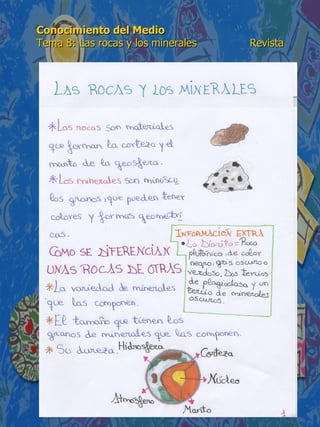 Conocimiento del Medio
Tema 8: Las rocas y los minerales Revista
LAS ROCAS Y LOS MINERALES
*Las rocas son materiales
que forman la corteza y el
manto de la geosfera.
*Los minerales son minúscu
los granos, que pueden tener
colores y formas geométri
cas.
INFORMACIÓN EXTRA
•La Diorita= Roca
plutónica, de color
negro, gris oscuro o
verdoso. Dos tercios
de plagioclasa y un
tercio de minerales
oscuros.
CÓMO SE DIFERENCIAN
UNAS ROCAS DE OTRAS
*La variedad de minerales
que las componen.
*El tamaño que tienen los
granos de minerales que las componen.
* Su dureza.
Hidrosfera
Corteza
Núcleo
Atmosfera
Manto
1